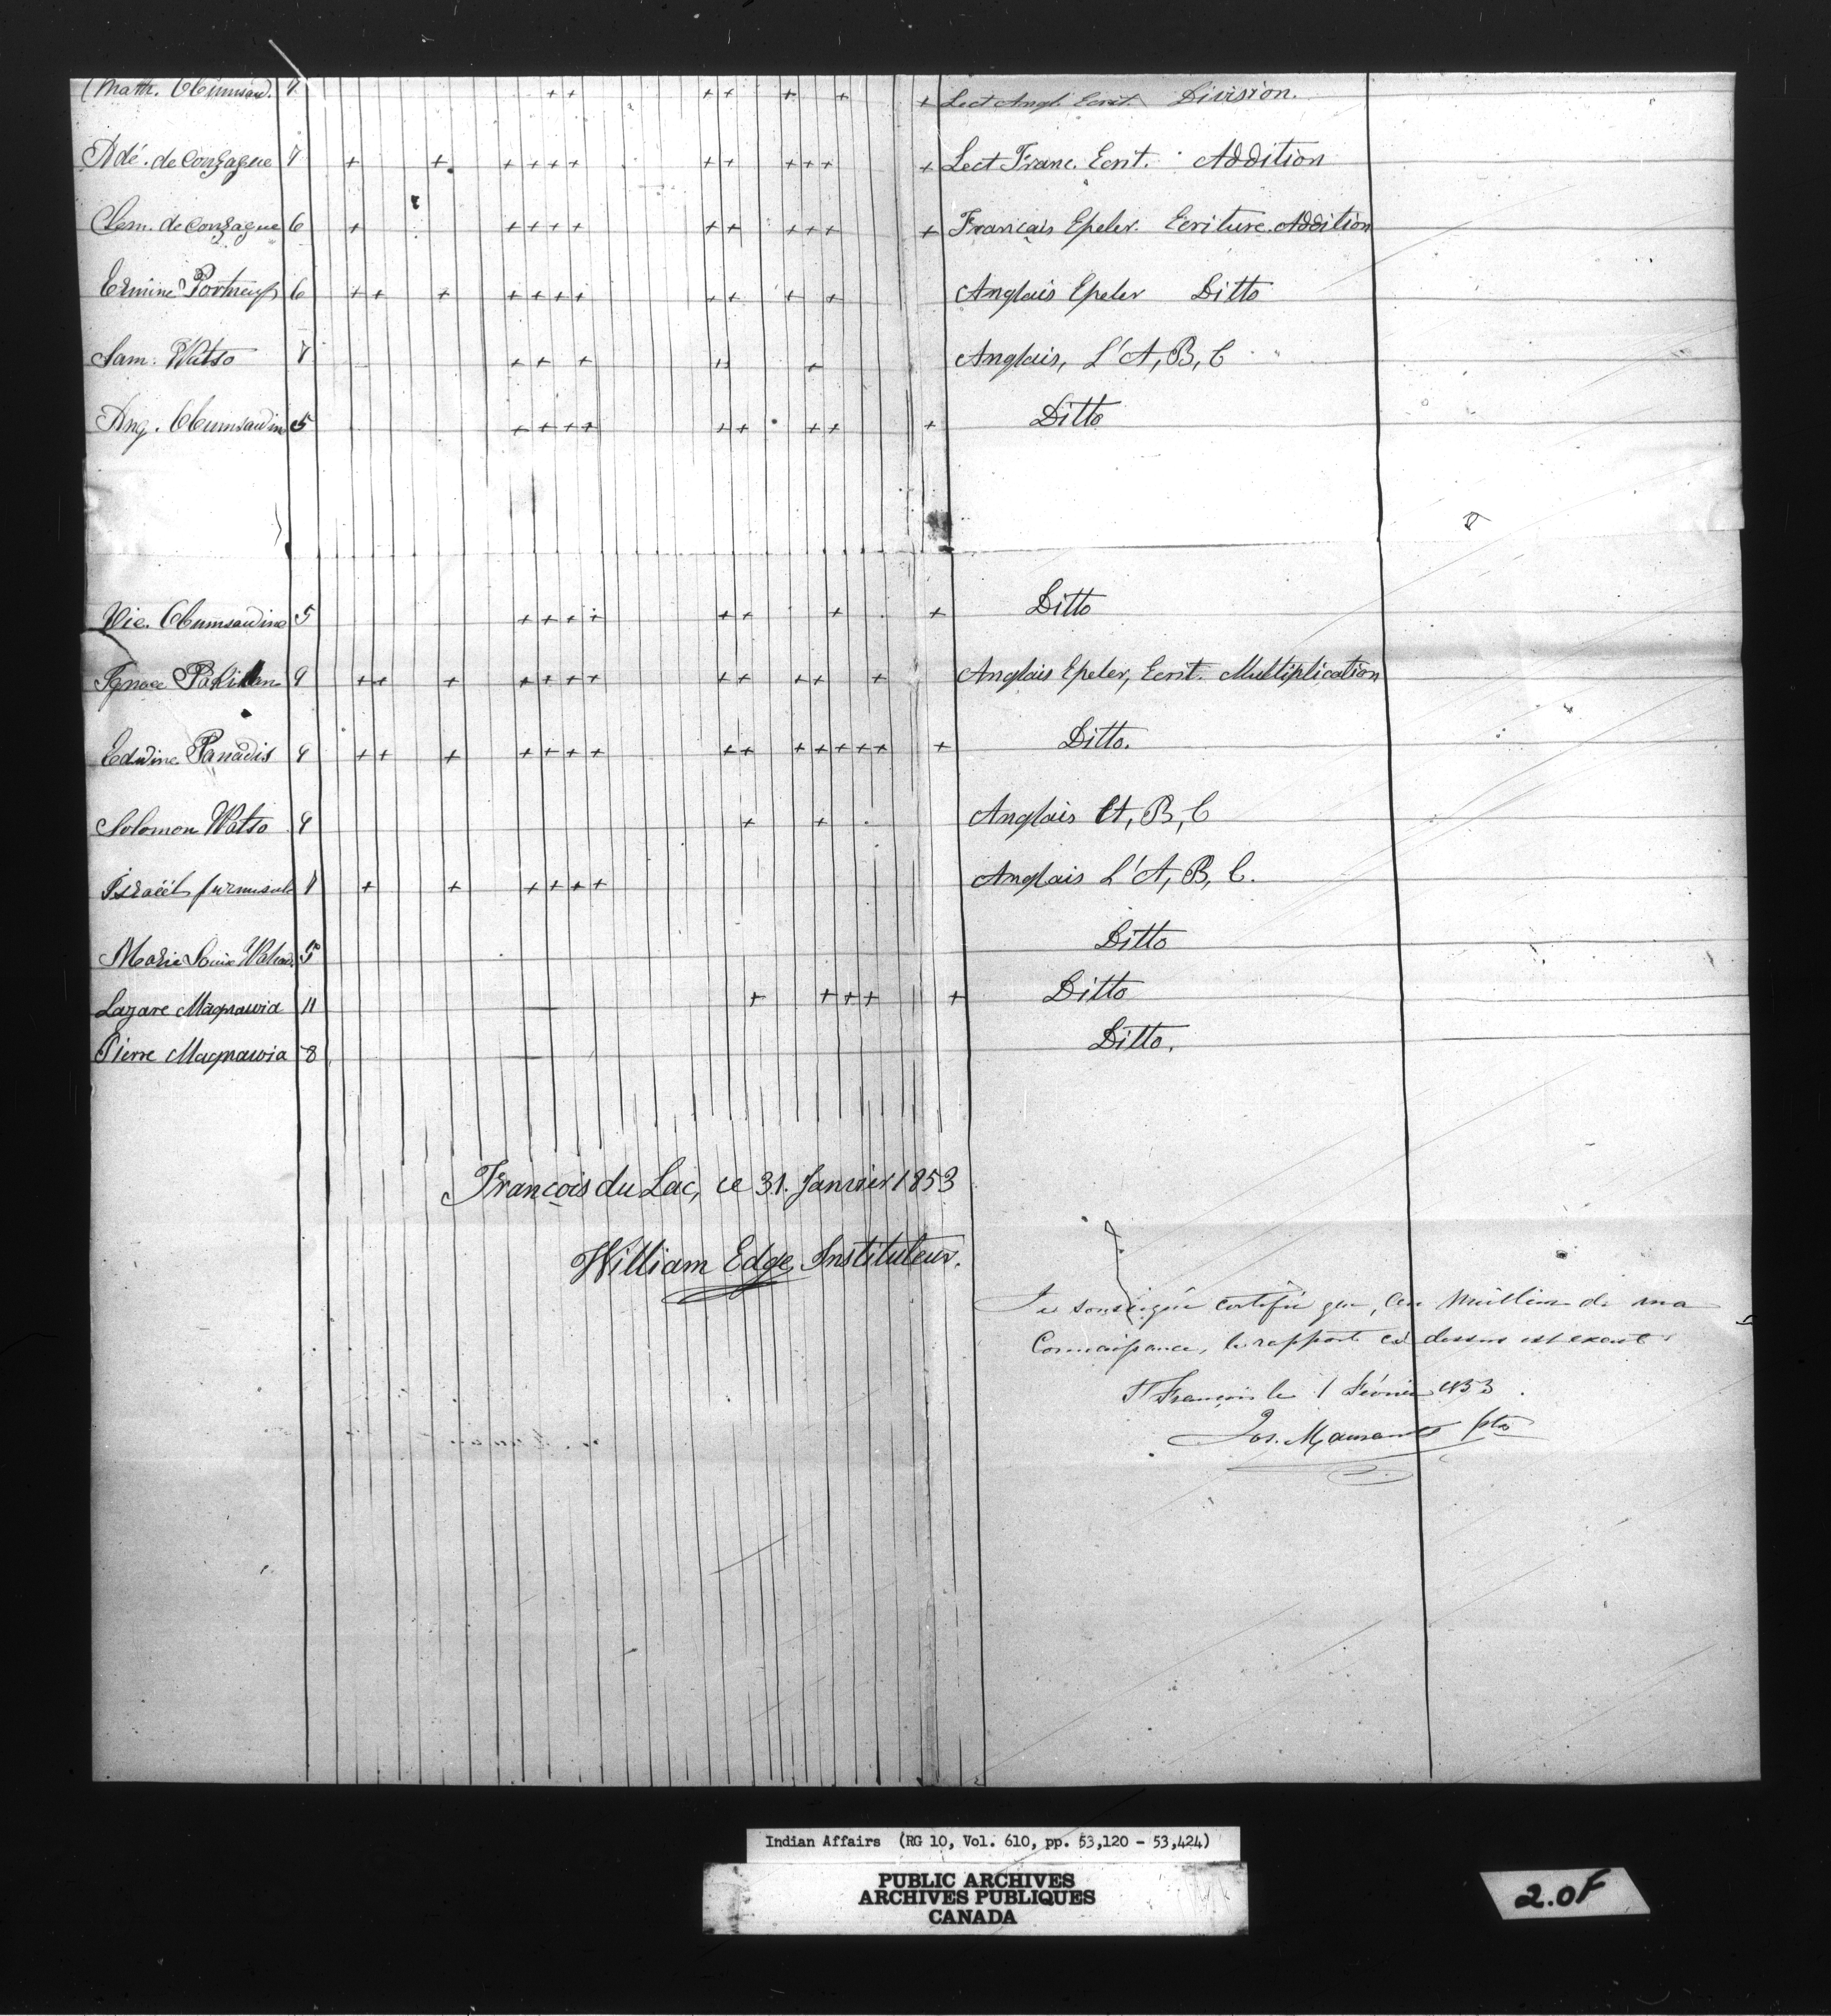 Math. Obumsaw. + + + + + + + Lect Angl. Ecrit. Division.
Adé. de Gonzague 7 + + + + + + + + + + + + Lect Franc. Ecrit. Addition
Clem. de Gonzague 6 + + + + + + + + + + + Francais Epeler. Ecriture. Addition
Ermine Portneuf 6 + + + + + + + + + + + Anglais Epeler Ditto
Sam. Watso + + + + + + Anglais, L'A, B, C
Ang. Obumsawin 5 + + + + + + + + + Ditto
Vic. Obumsawine 5 + + + + + + + + Ditto
Ignace 9 + + + + + + + + + + + + Anglais Epeler, Ecrit. Multiplication
Edwine Panadis + + + + + + + + + + + + + + + Ditto.
Solomon Watso + + Anglais A, B, C
Israël + + + + + + Anglais L'A, B, C.
Marie Louise 5 Ditto
Lazare Magnawia 11 + + + + + Ditto
Pierre Magnawia 8 Ditto.
François du Lac, ce 31. Janvier 1853
William Edge Instituteur.
Je soussigné certifie que, au meilleur de ma
Connaissance, le rapport ci dessus est exact
St François le 1 Février 1853
Jos. Maurault ptre
Indian Affairs (RG 10, Vol. 610, pp. 53,120 - 53,424)
PUBLIC ARCHIVES
ARCHIVES PUBLIQUES
CANADA
2.OF